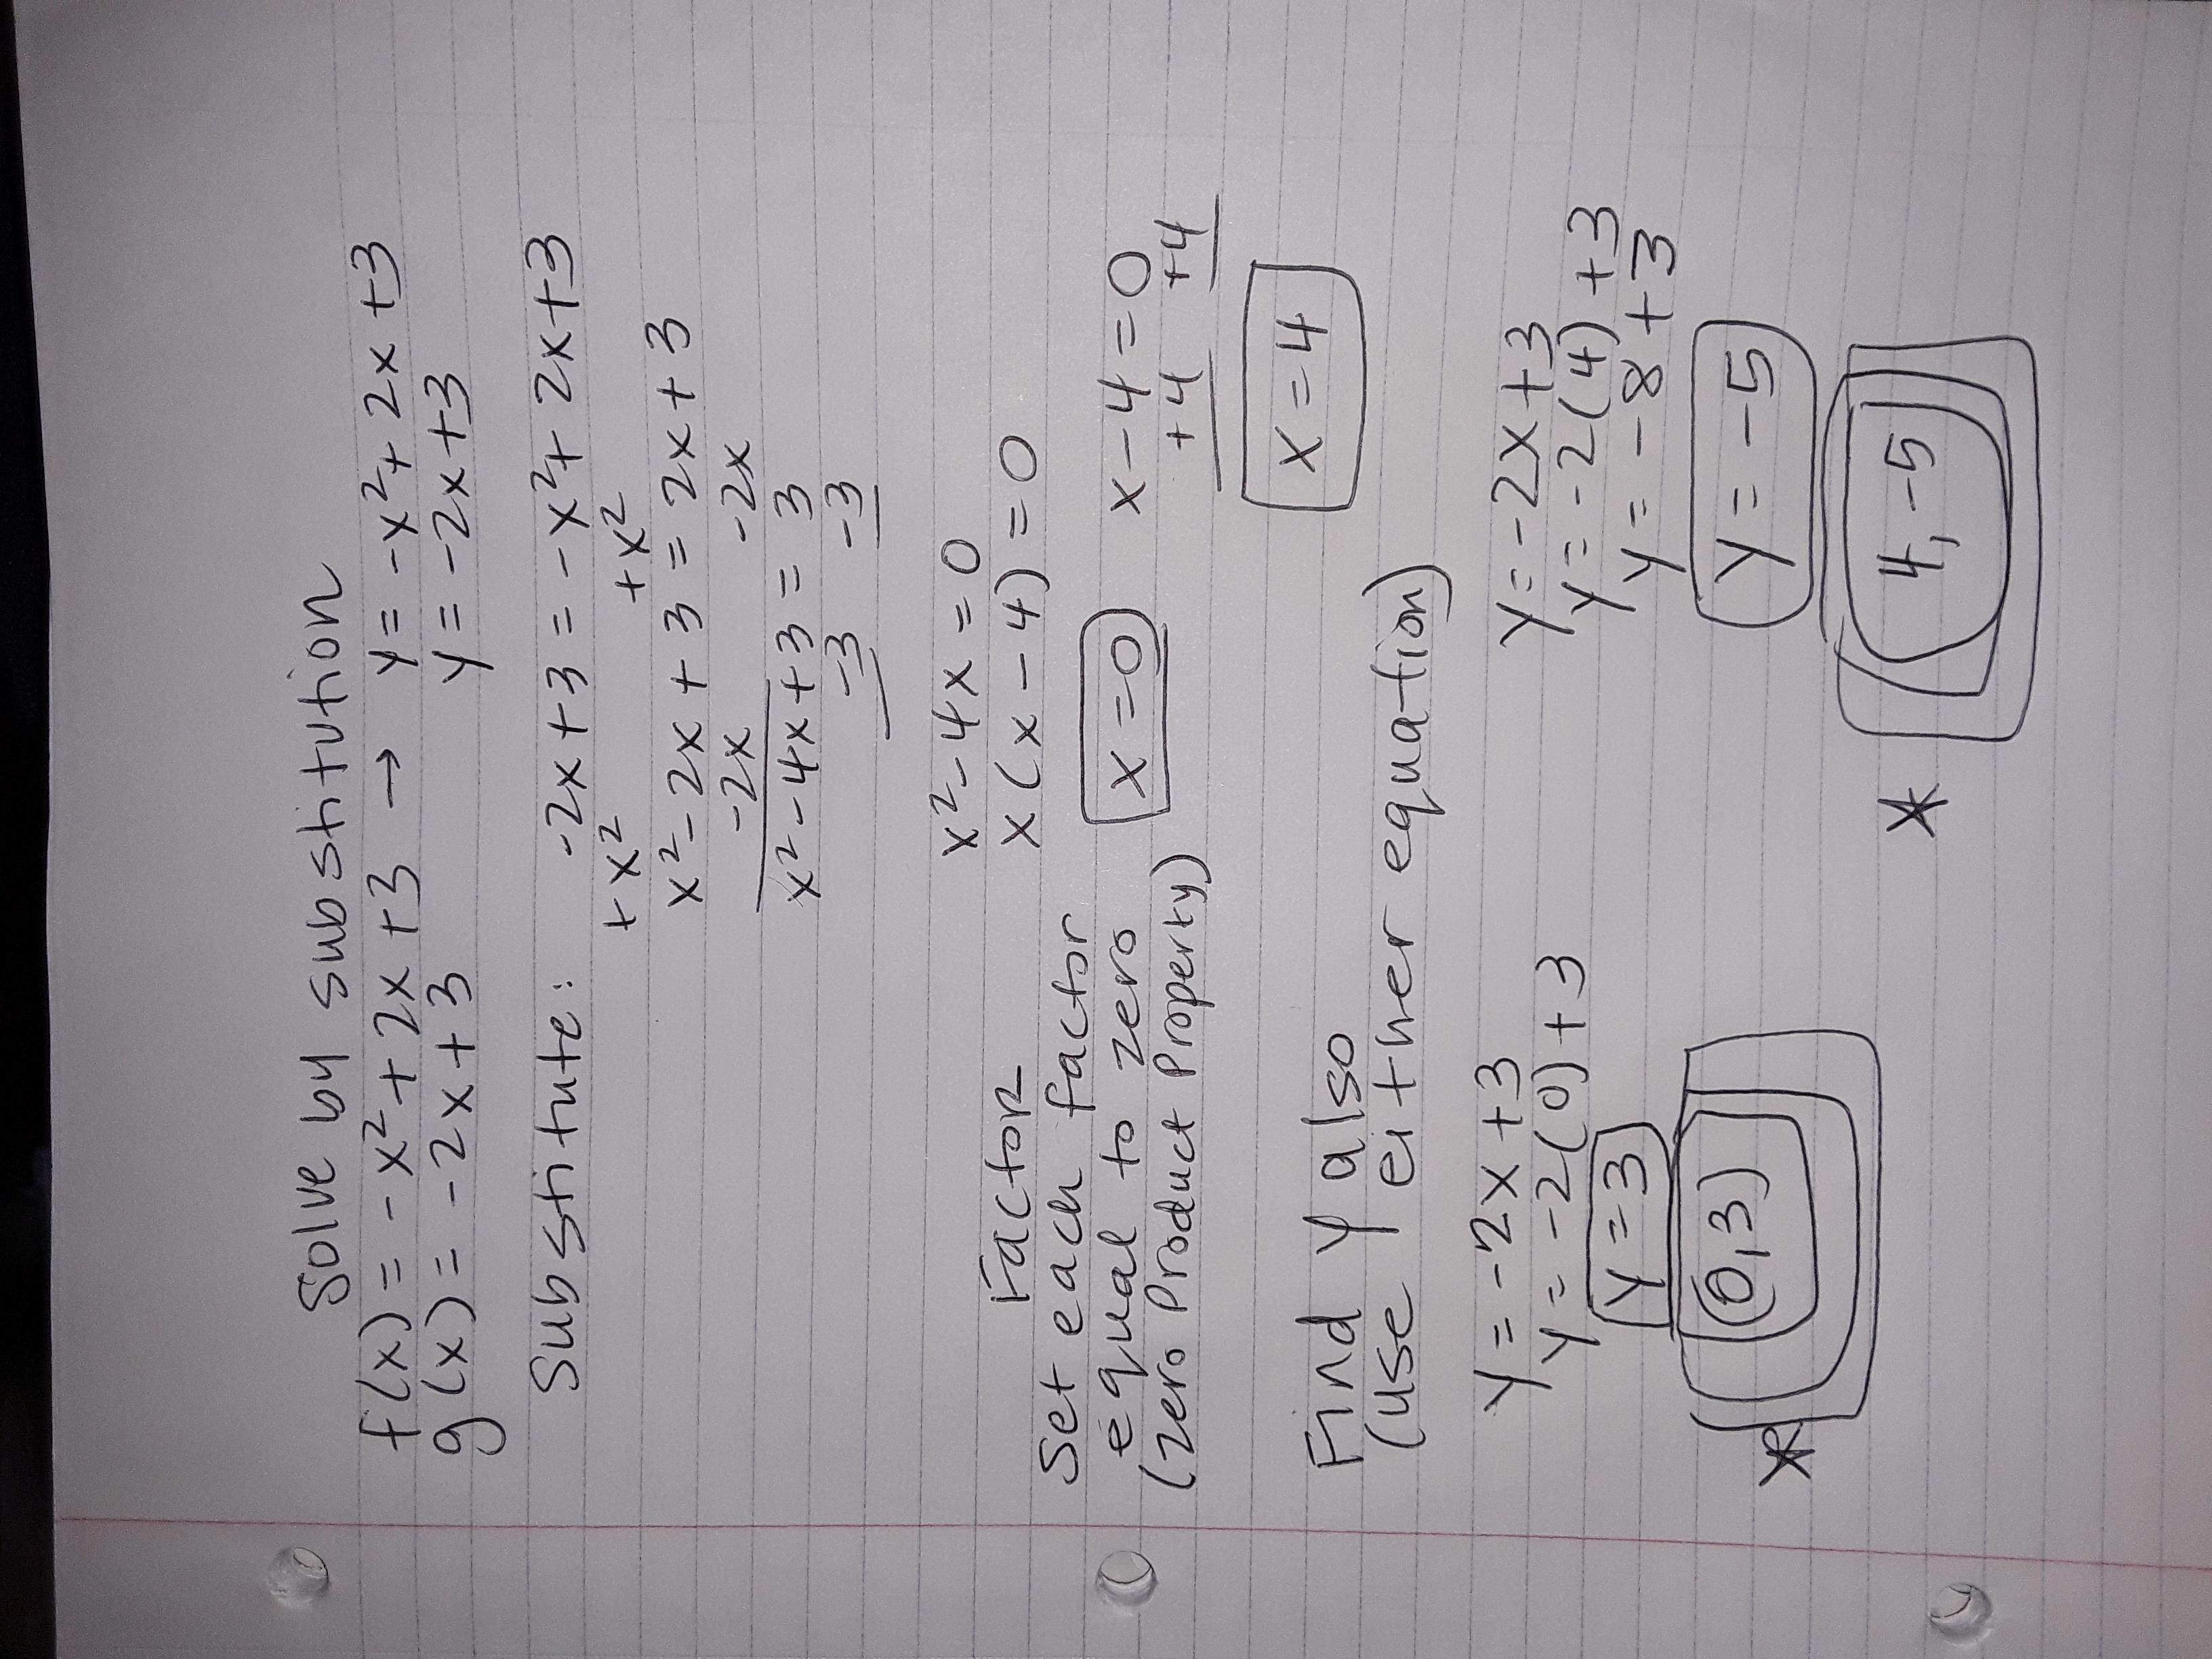 Solve by substitution
f(x) = -x² + 2x + 3 → y = -x² + 2x + 3
g(x) = -2x + 3 y = -2x + 3
Substitute: -2x + 3 = -x² + 2x + 3
+x² +x²
x² - 2x + 3 = 2x + 3
-2x -2x
x² - 4x + 3 = 3
-3 -3
x² - 4x = 0
Factor x(x - 4) = 0
Set each factor
equal to zero x = 0 x - 4 = 0
(zero Product Property) +4 +4
x = 4
Find y also
(use either equation)
y = -2x + 3 y = -2x + 3
y = -2(0) + 3 y = -2(4) + 3
y = 3 y = -8 + 3
(0,3) y = -5
4, -5